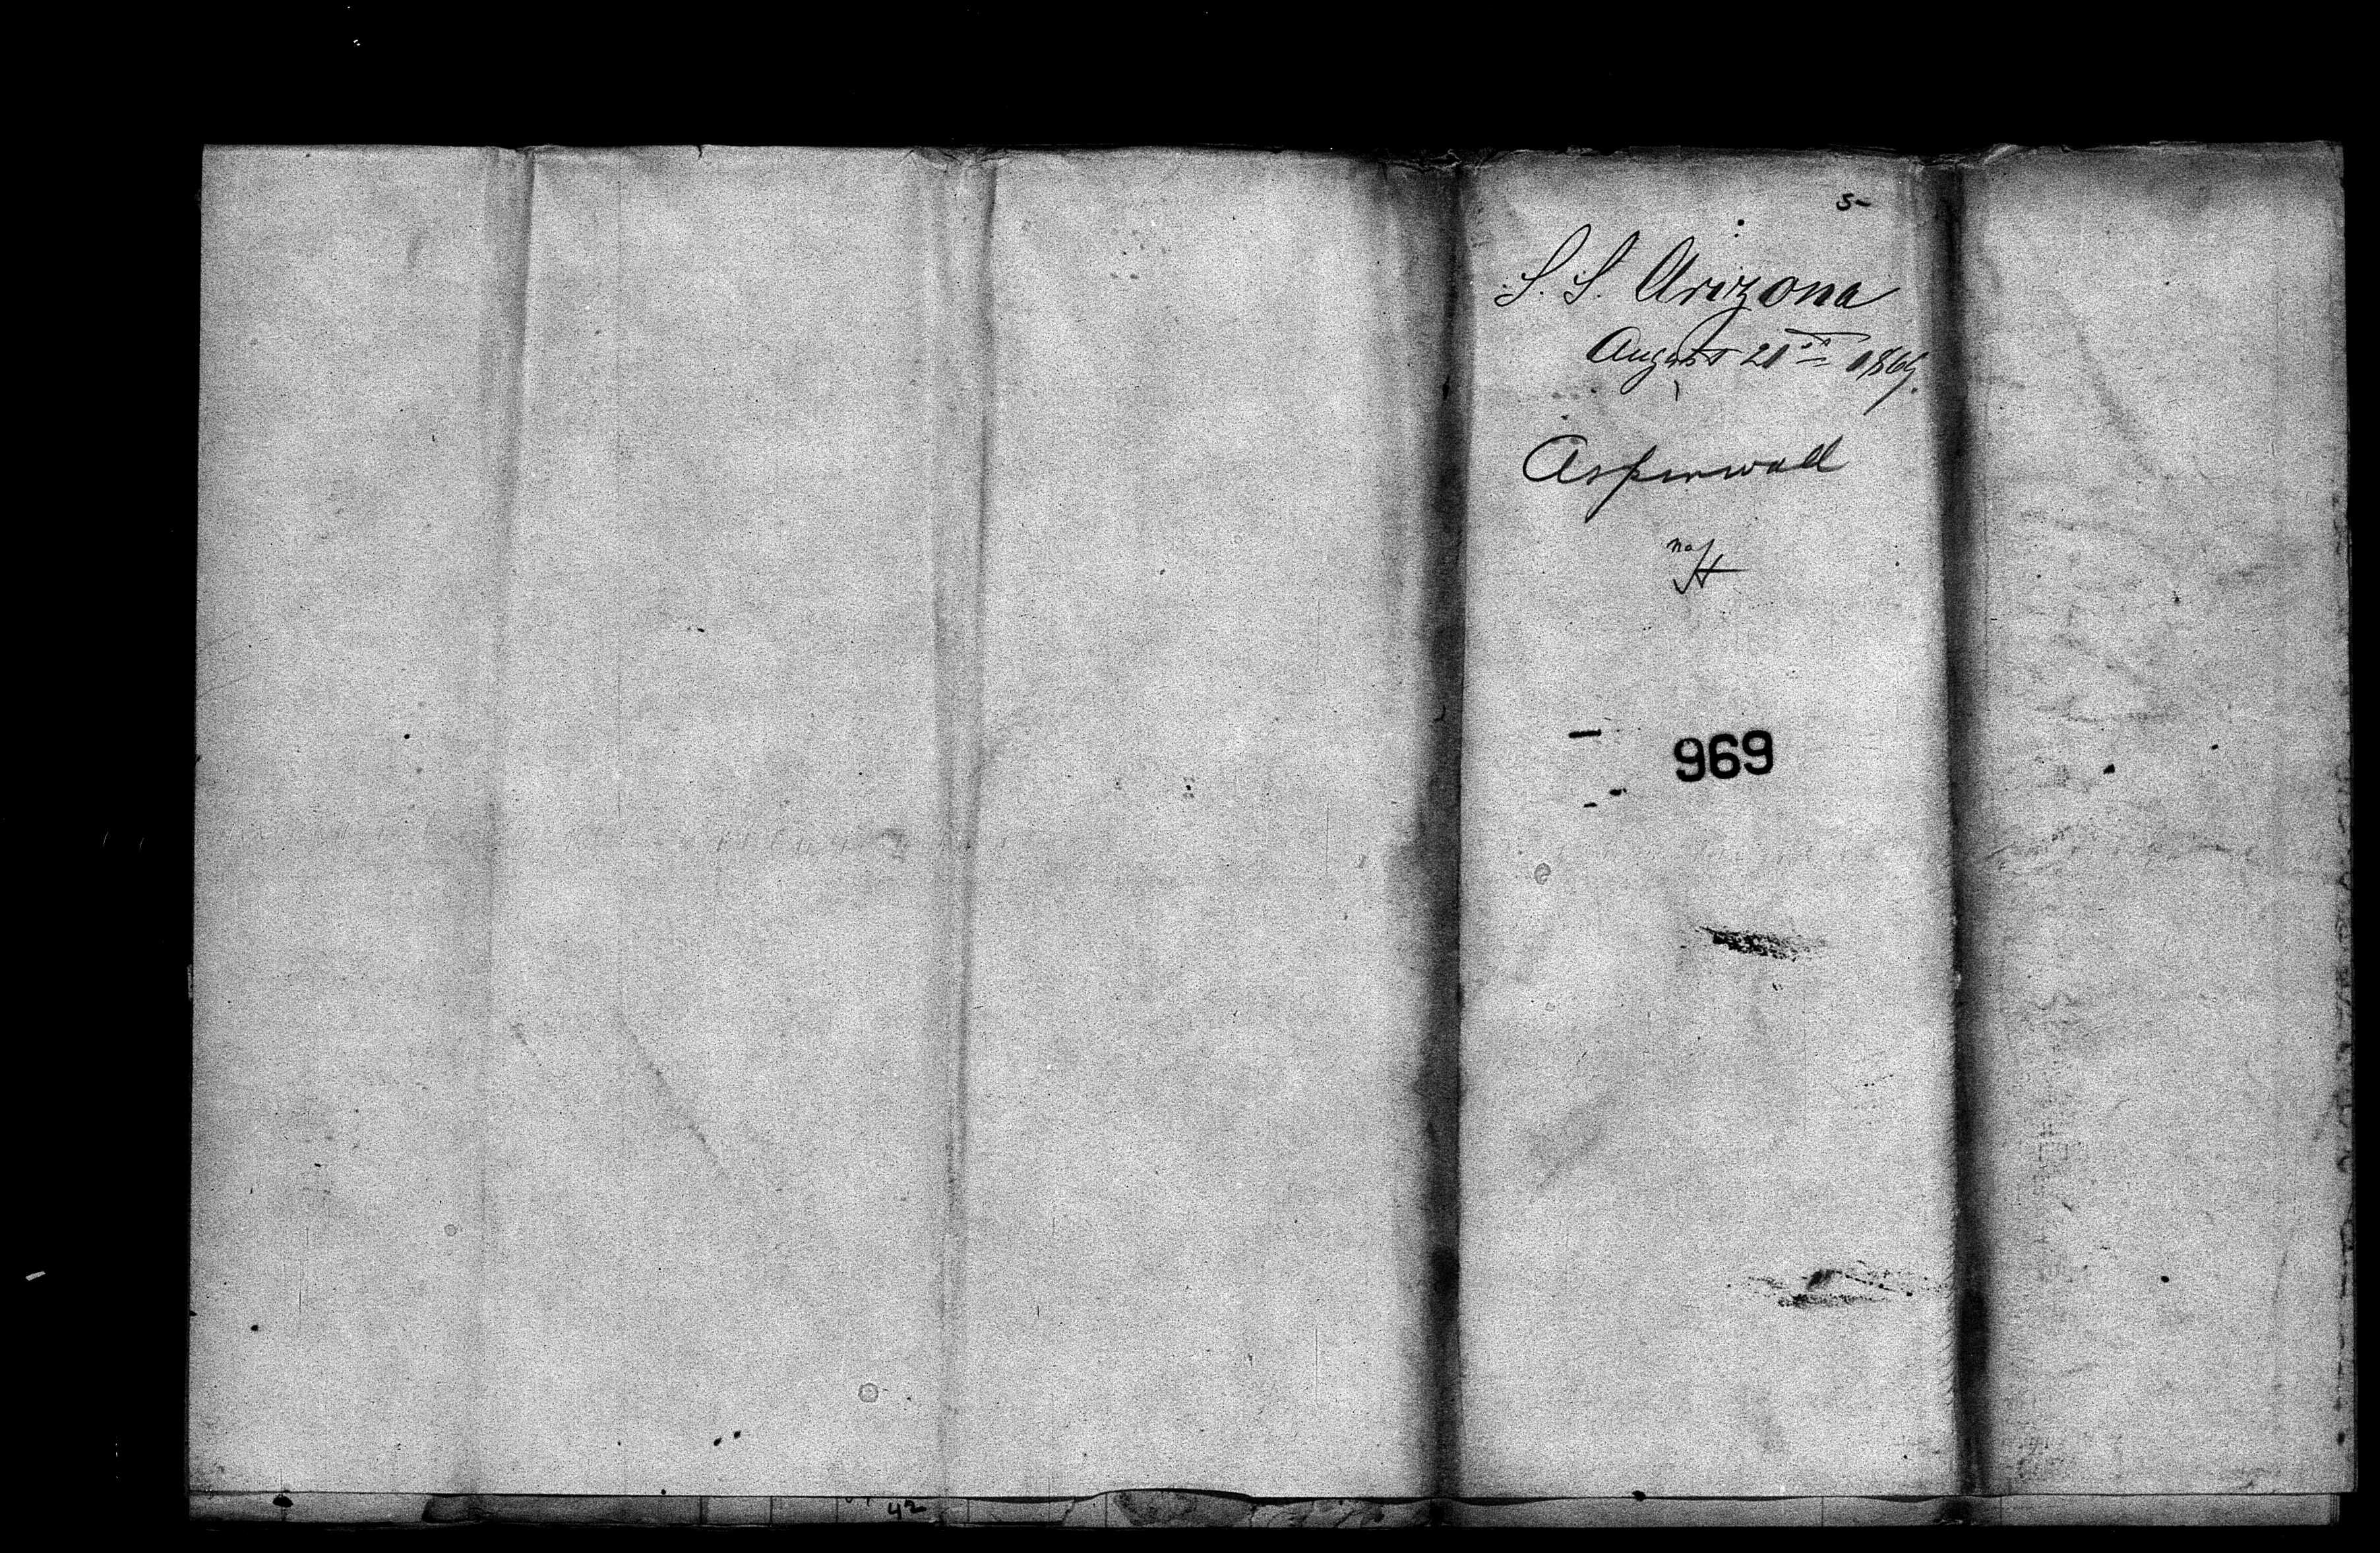 S. S. Arizona
August 21st 1869.
Aspinwall
969
42